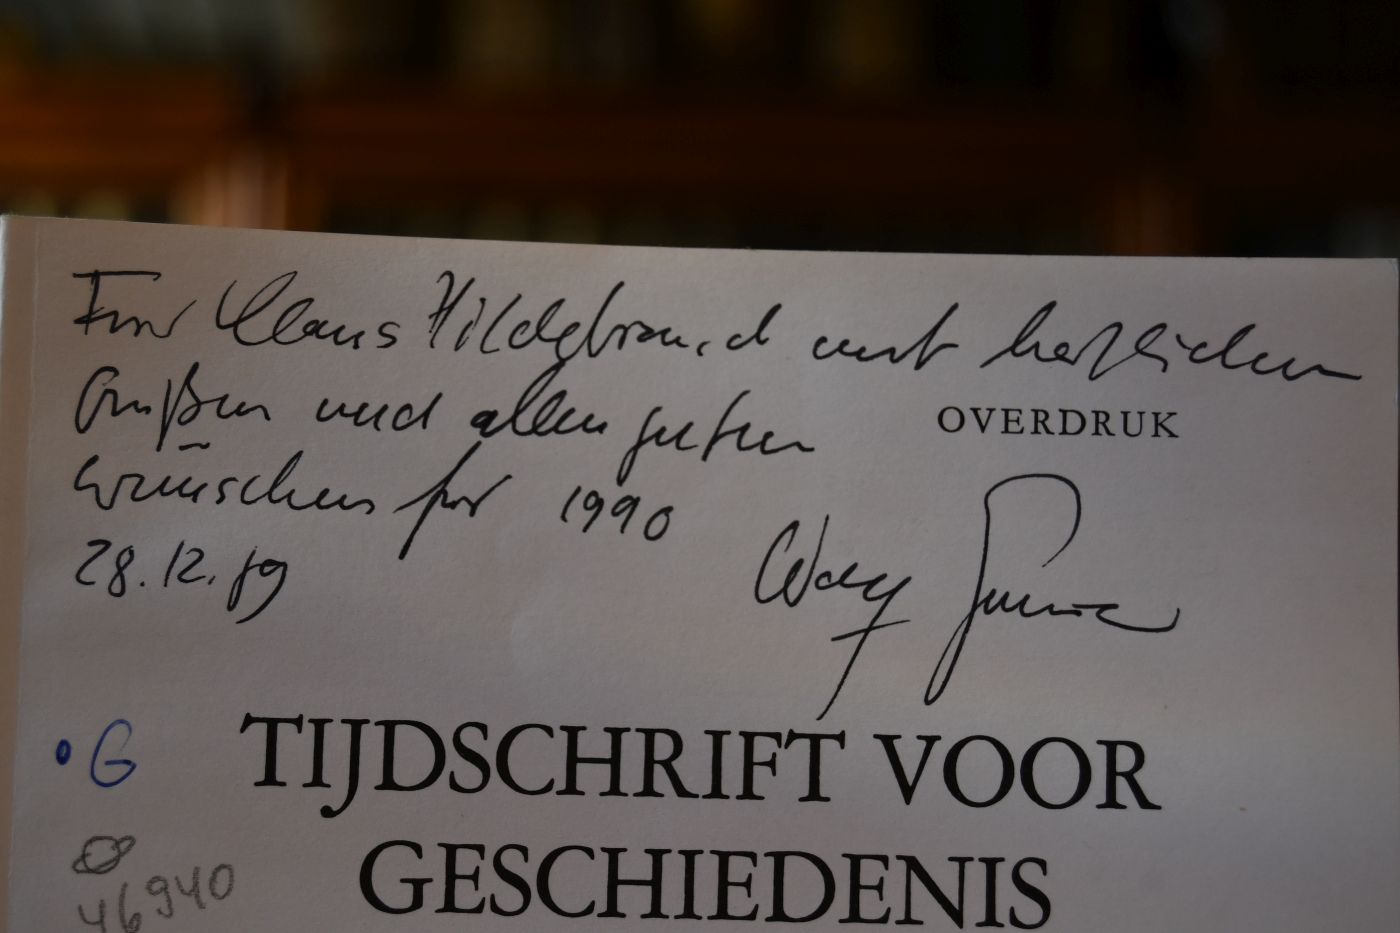 Für Klaus Hildebrand mit herzlichen
Grüßen und allen guten
Wünschen für 1990
28.12.89
OVERDRUK
Wolf
• G
TIJDSCHRIFT VOOR
GESCHIEDENIS
46940